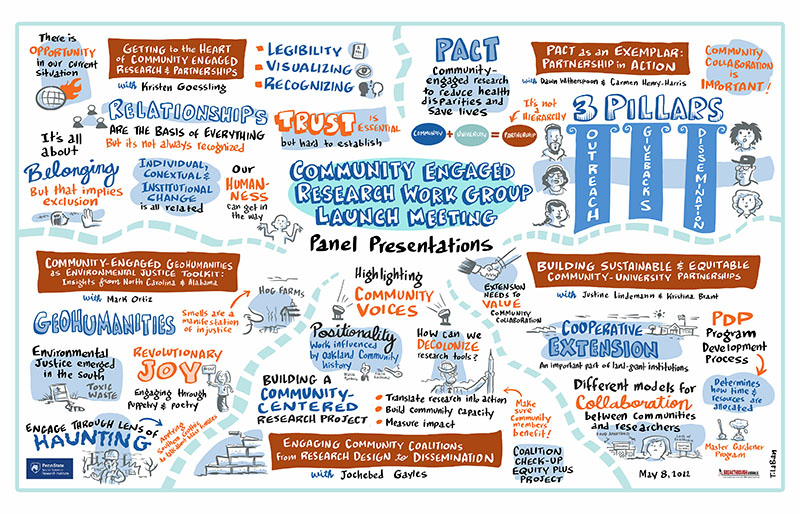 There is
OPPORTUNITY
in our current
situation
GETTING to the HEART
OF COMMUNITY ENGAGED
RESEARCH & PARTNERSHIPS
with Kristen Goessling
LEGIBILITY
VISUALIZING
RECOGNIZING
RELATIONSHIPS
ARE THE BASIS OF EVERYTHING
But its not always recognized
TRUST IS
ESSENTIAL
but hard to establish
It's all
about
Belonging
But that implies
exclusion
INDIVIDUAL,
CONEXTUAL &
INSTITUTIONAL
CHANGE
is all related
OUR
HUMAN-
NESS
can get in
the way
PACT
Community-
engaged research
to reduce health
disparities and
save lives
PACT as an EXEMPLAR:
PARTNERSHIP in ACTION
with Dawn Witherspoon & Carmen Henry-Harris
COMMUNITY
COLLABORATION
IS
IMPORTANT!
It's not
a HIERARCHY
COMMUNITY + UNIVERSITY = PARTNERSHIP
3 PILLARS
OUTREACH
GIVEBACKS
DISSEMINATION
COMMUNITY ENGAGED
RESEARCH WORK GROUP
LAUNCH MEETING
Panel Presentations
COMMUNITY-ENGAGED GEOHUMANITIES
as ENVIRONMENTAL JUSTICE TOOLKIT:
Insights from North Carolina & Alabama
with Mark Ortiz
GEOHUMANITIES
Smells are a
manifestation
of injustice
HOG FARMS
Environmental
Justice emerged
in the south
TOXIC
WASTE
REVOLUTIONARY
JOY
Engaging through
Puppetry & poetry
ENGAGE THROUGH LENS OF
HAUNTING
Applying
Southern Gothic
PennState
Highlighting
COMMUNITY
VOICES
Positionality
Work influenced
by Oakland Community
history
HOW can we
DECOLONIZE
research tools?
BUILDING A
COMMUNITY-
CENTERED
RESEARCH PROJECT
Translate research into action
Build community capacity
Measure impact
Make
sure
Community
members
benefit!
ENGAGING COMMUNITY COALITIONS
FROM RESEARCH DESIGN to DISSEMINATION
with Jochebed Gayles
COALITION
CHECK-UP
EQUITY PLUS
PROJECT
EXTENSION
NEEDS TO
VALUE
COMMUNITY
COLLABORATION
BUILDING SUSTAINABLE & EQUITABLE
COMMUNITY-UNIVERSITY PARTNERSHIPS
with Justine Lindemann & Kristina Brant
COOPERATIVE
EXTENSION
An important part of land-grant institutions
PDP
Program
Development
Process
Determines
how time &
resources are
allocated
Different models for
Collaboration
between communities
and researchers
Master Gardener
Program
May 8, 2022
TiaBan